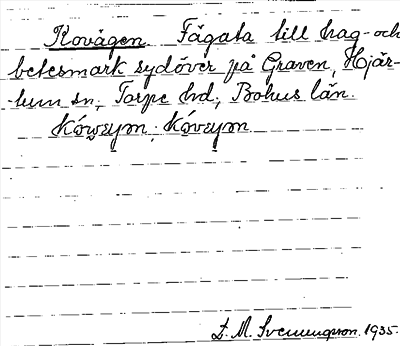 Kovägen Fägata till hag- och
betesmark sydöver på Graven, Hjär-
-tum sn, Torpe hd, Bohus län.
Kówęym; Kóvęym
L. M. Svenungsson. 1935.